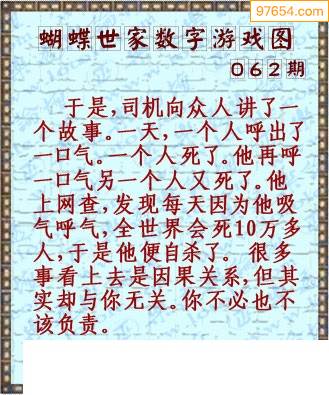 97654.com
蝴蝶世家数字游戏图
062期
于是,司机向众人讲了一
个故事。一天,一个人呼出了
一口气。一个人死了。他再呼
一口气另一个人又死了。他
上网查,发现每天因为他吸
气呼气,全世界会死10万多
人,于是他便自杀了。 很多
事看上去是因果关系,但其
实却与你无关。你不必也不
该负责。